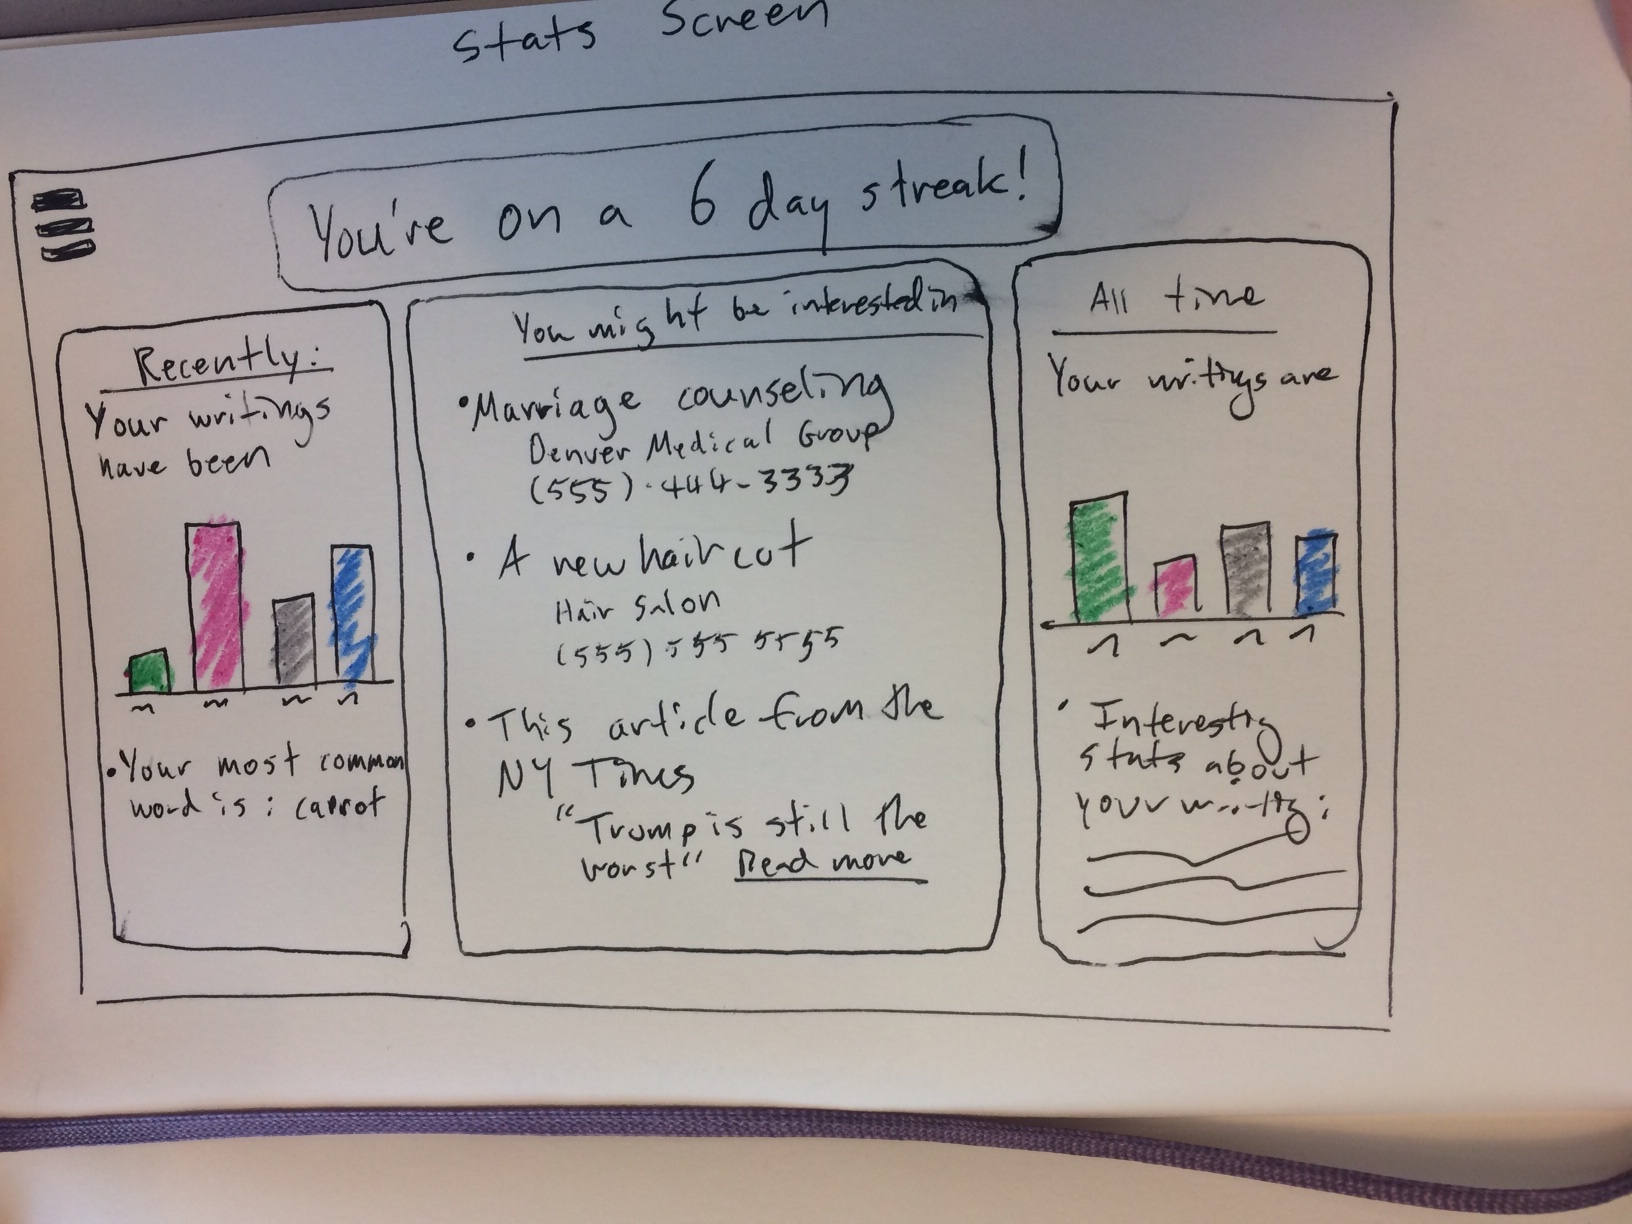 Stats Screen
You're on a 6 day streak!
Recently:
Your writings
have been
• Your most common
word is : carrot
You might be interested in
• Marriage counseling
Denver Medical Group
(555) - 444 - 3333
• A new haircut
Hair Salon
(555) 555 5555
• This article from the
NY Times
"Trump is still the
worst" Read more
All time
Your writings are
• Interesting
stats about
your writing: